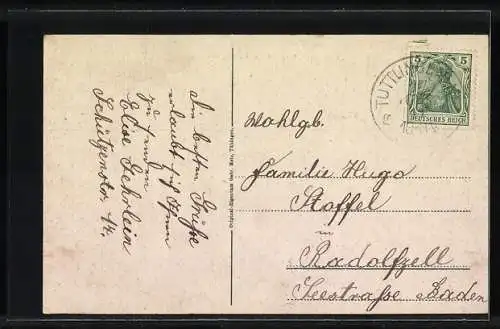 Die besten Grüße
erlaubt sich Ihnen
zu senden
Elise Fehrlein
Schützenstr. 14.
Original-Eigentum Gebr. Metz, Tübingen.
TUTTLIN
5 5
DEUTSCHES REICH
Wohlgb.
Familie Hugo
Stoffel
in
Radolfzell
Seestraße Baden